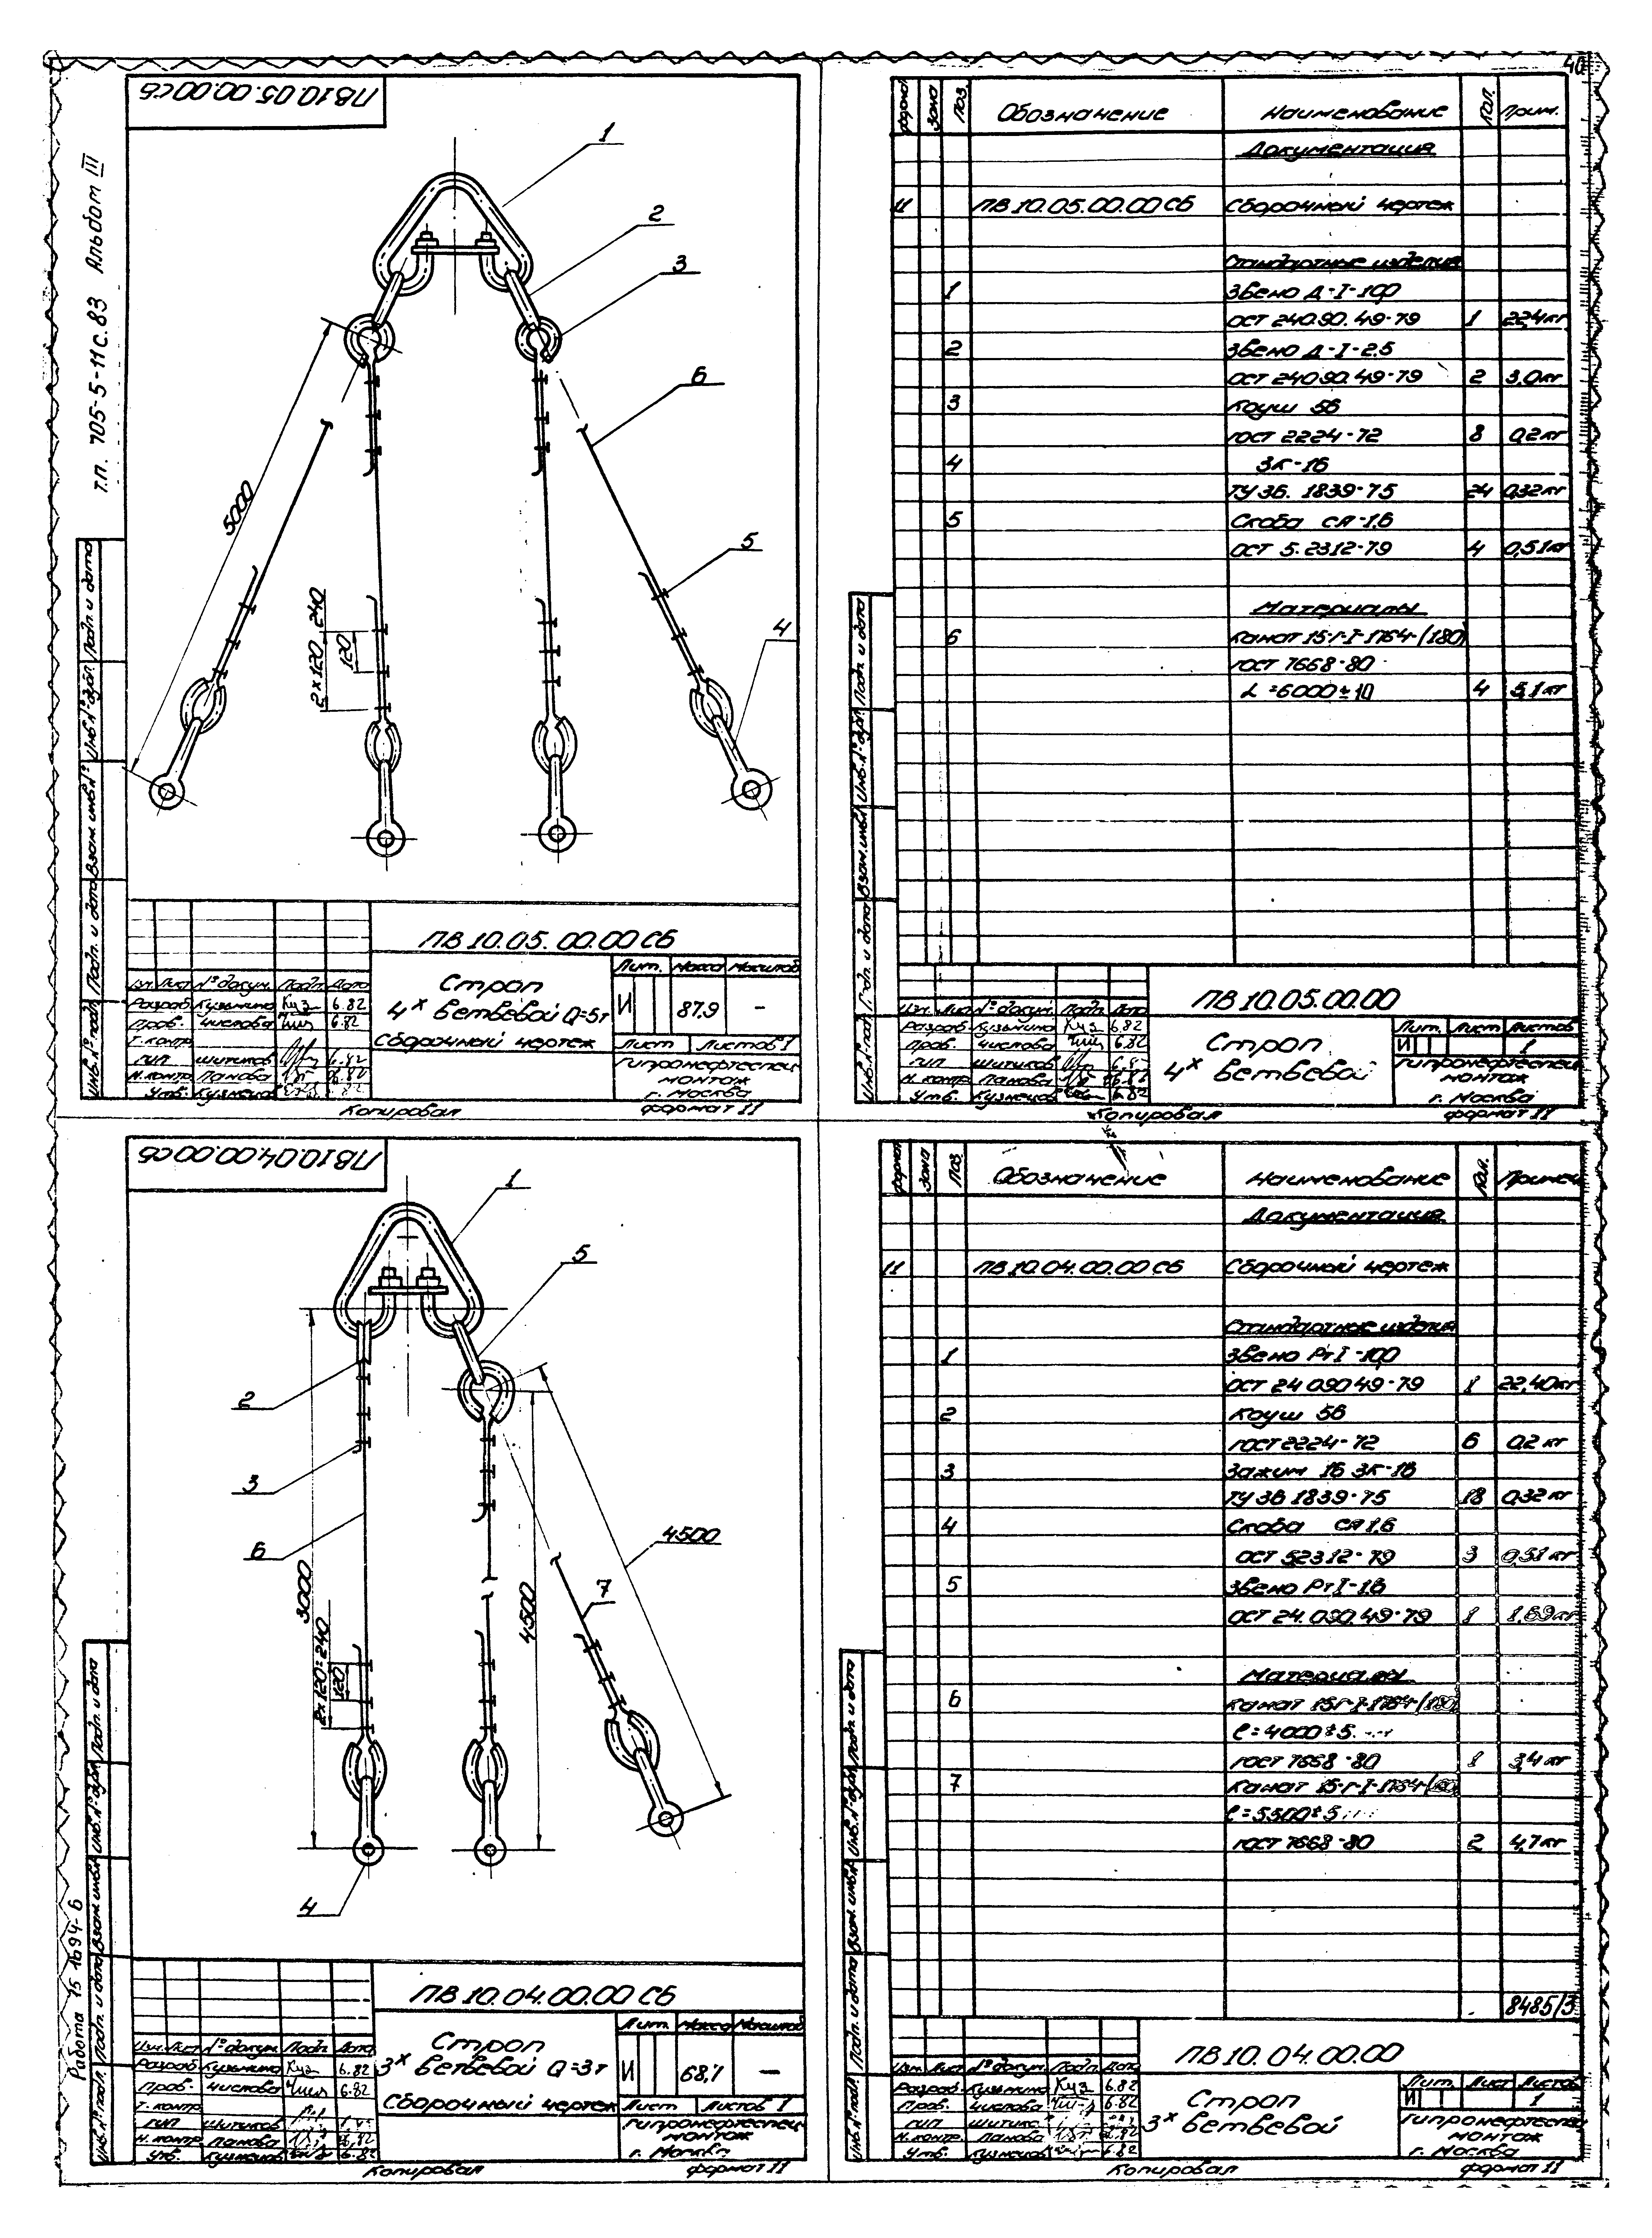 40
т.п. 705-5-11с.83 Альбом III
ПВ10.05.00.00СБ
1
2
3
6
5
4
5000
2×120 240
120
Инв.№ подл. Подп. и дата Взам. инв.№ Инв.№ дубл. Подп. и дата
ПВ10.05.00.00СБ
Изм. Лист № докум. Подп. Дата
Разраб. Кузьмина Куз 6.82
Пров. Числова 6.82
Т. контр.
ГИП Шитиков 6.82
Н. контр. Панова 6.82
Утв. Кузнецов
Строп
4х ветвевой Q=5т
Сборочный чертеж
Лит. Масса Масштаб
И 87.9 –
Лист Листов 1
Гипронефтеспец
монтаж
г. Москва
Копировал формат 11
формат Зона Поз. Обозначение Наименование Кол. Прим.
Документация
11 ПВ10.05.00.00СБ Сборочный чертеж
Стандартные изделия
1 Звено Д-I-10,0
ОСТ 24.090.49-79 1 22,4кг
2 Звено Д-I-2.5
ОСТ 24.090.49-79 2 3,0кг
3 Коуш 56
ГОСТ 2224-72 8 0,2кг
4 ЗК-16
ТУ 36. 1839-75 24 0,32кг
5 Скоба СА-1,6
ОСТ 5.2312-79 4 0,51кг
Материалы
6 Канат 15-Г-I-1764-(180)
ГОСТ 7668-80
L=6000±10 4 5,1кг
Инв.№ подл. Подп. и дата Взам. инв.№ Инв.№ дубл. Подп. и дата
ПВ10.05.00.00
Изм. Лист № докум. Подп. Дата
Разраб. Кузьмина Куз 6.82
Пров. Числова 6.82
ГИП Шитиков 6.82
Н. контр. Панова 6.82
Утв. Кузнецов 6.82
Строп
4х ветвевой
Лит. Лист Листов
И 1
Гипронефтеспец
монтаж
г. Москва
Копировал формат 11
ПВ10.04.00.00СБ
1
5
2
3
6
7
4
3000
4500
4500
2×120=240
120
Работа 15 1694-6
Инв.№ подл. Подп. и дата Взам. инв.№ Инв.№ дубл. Подп. и дата
ПВ10.04.00.00СБ
Изм. Лист № докум. Подп. Дата
Разраб. Кузьмина Куз 6.82
Пров. Числова 6.82
Т. контр.
ГИП Шитиков
Н. контр. Панова 6.82
Утв. Кузнецов 6.82
Строп
3х ветвевой Q=3т
Сборочный чертеж
Лит. Масса Масштаб
И 68,7 –
Лист Листов 1
Гипронефтеспец
монтаж
г. Москва
Копировал формат 11
формат Зона Поз. Обозначение Наименование Кол. Примеч
Документация
11 ПВ10.04.00.00СБ Сборочный чертеж
Стандартные изделия
1 Звено РтI-10,0
ОСТ 24 090 49-79 1 22,40кг
2 Коуш 56
ГОСТ 2224-72 6 0,2 кг
3 Зажим 16 ЗК-16
ТУ 36 1839-75 18 0,32 кг
4 Скоба СА 1,6
ОСТ 5.2312-79 3 0,51 кг
5 Звено РтI-1,6
ОСТ 24.090.49-79 1 1,69кг
Материалы
6 Канат 15-Г-I-1764-(180)
ℓ=4000±5
ГОСТ 7668-80 1 3,4 кг
7 Канат 15-Г-I-1764-(180)
ℓ=5500±5
ГОСТ 7668-80 2 4,7 кг
8485/3
Инв.№ подл. Подп. и дата Взам. инв.№ Инв.№ дубл. Подп. и дата
ПВ10.04.00.00
Изм. Лист № докум. Подп. Дата
Разраб. Кузьмина Куз 6.82
Пров. Числова 6.82
ГИП Шитиков
Н. контр. Панова 6.82
Утв. Кузнецов 6.82
Строп
3х ветвевой
Лит. Лист Листов
И 1
Гипронефтеспец
монтаж
г. Москва
Копировал формат 11